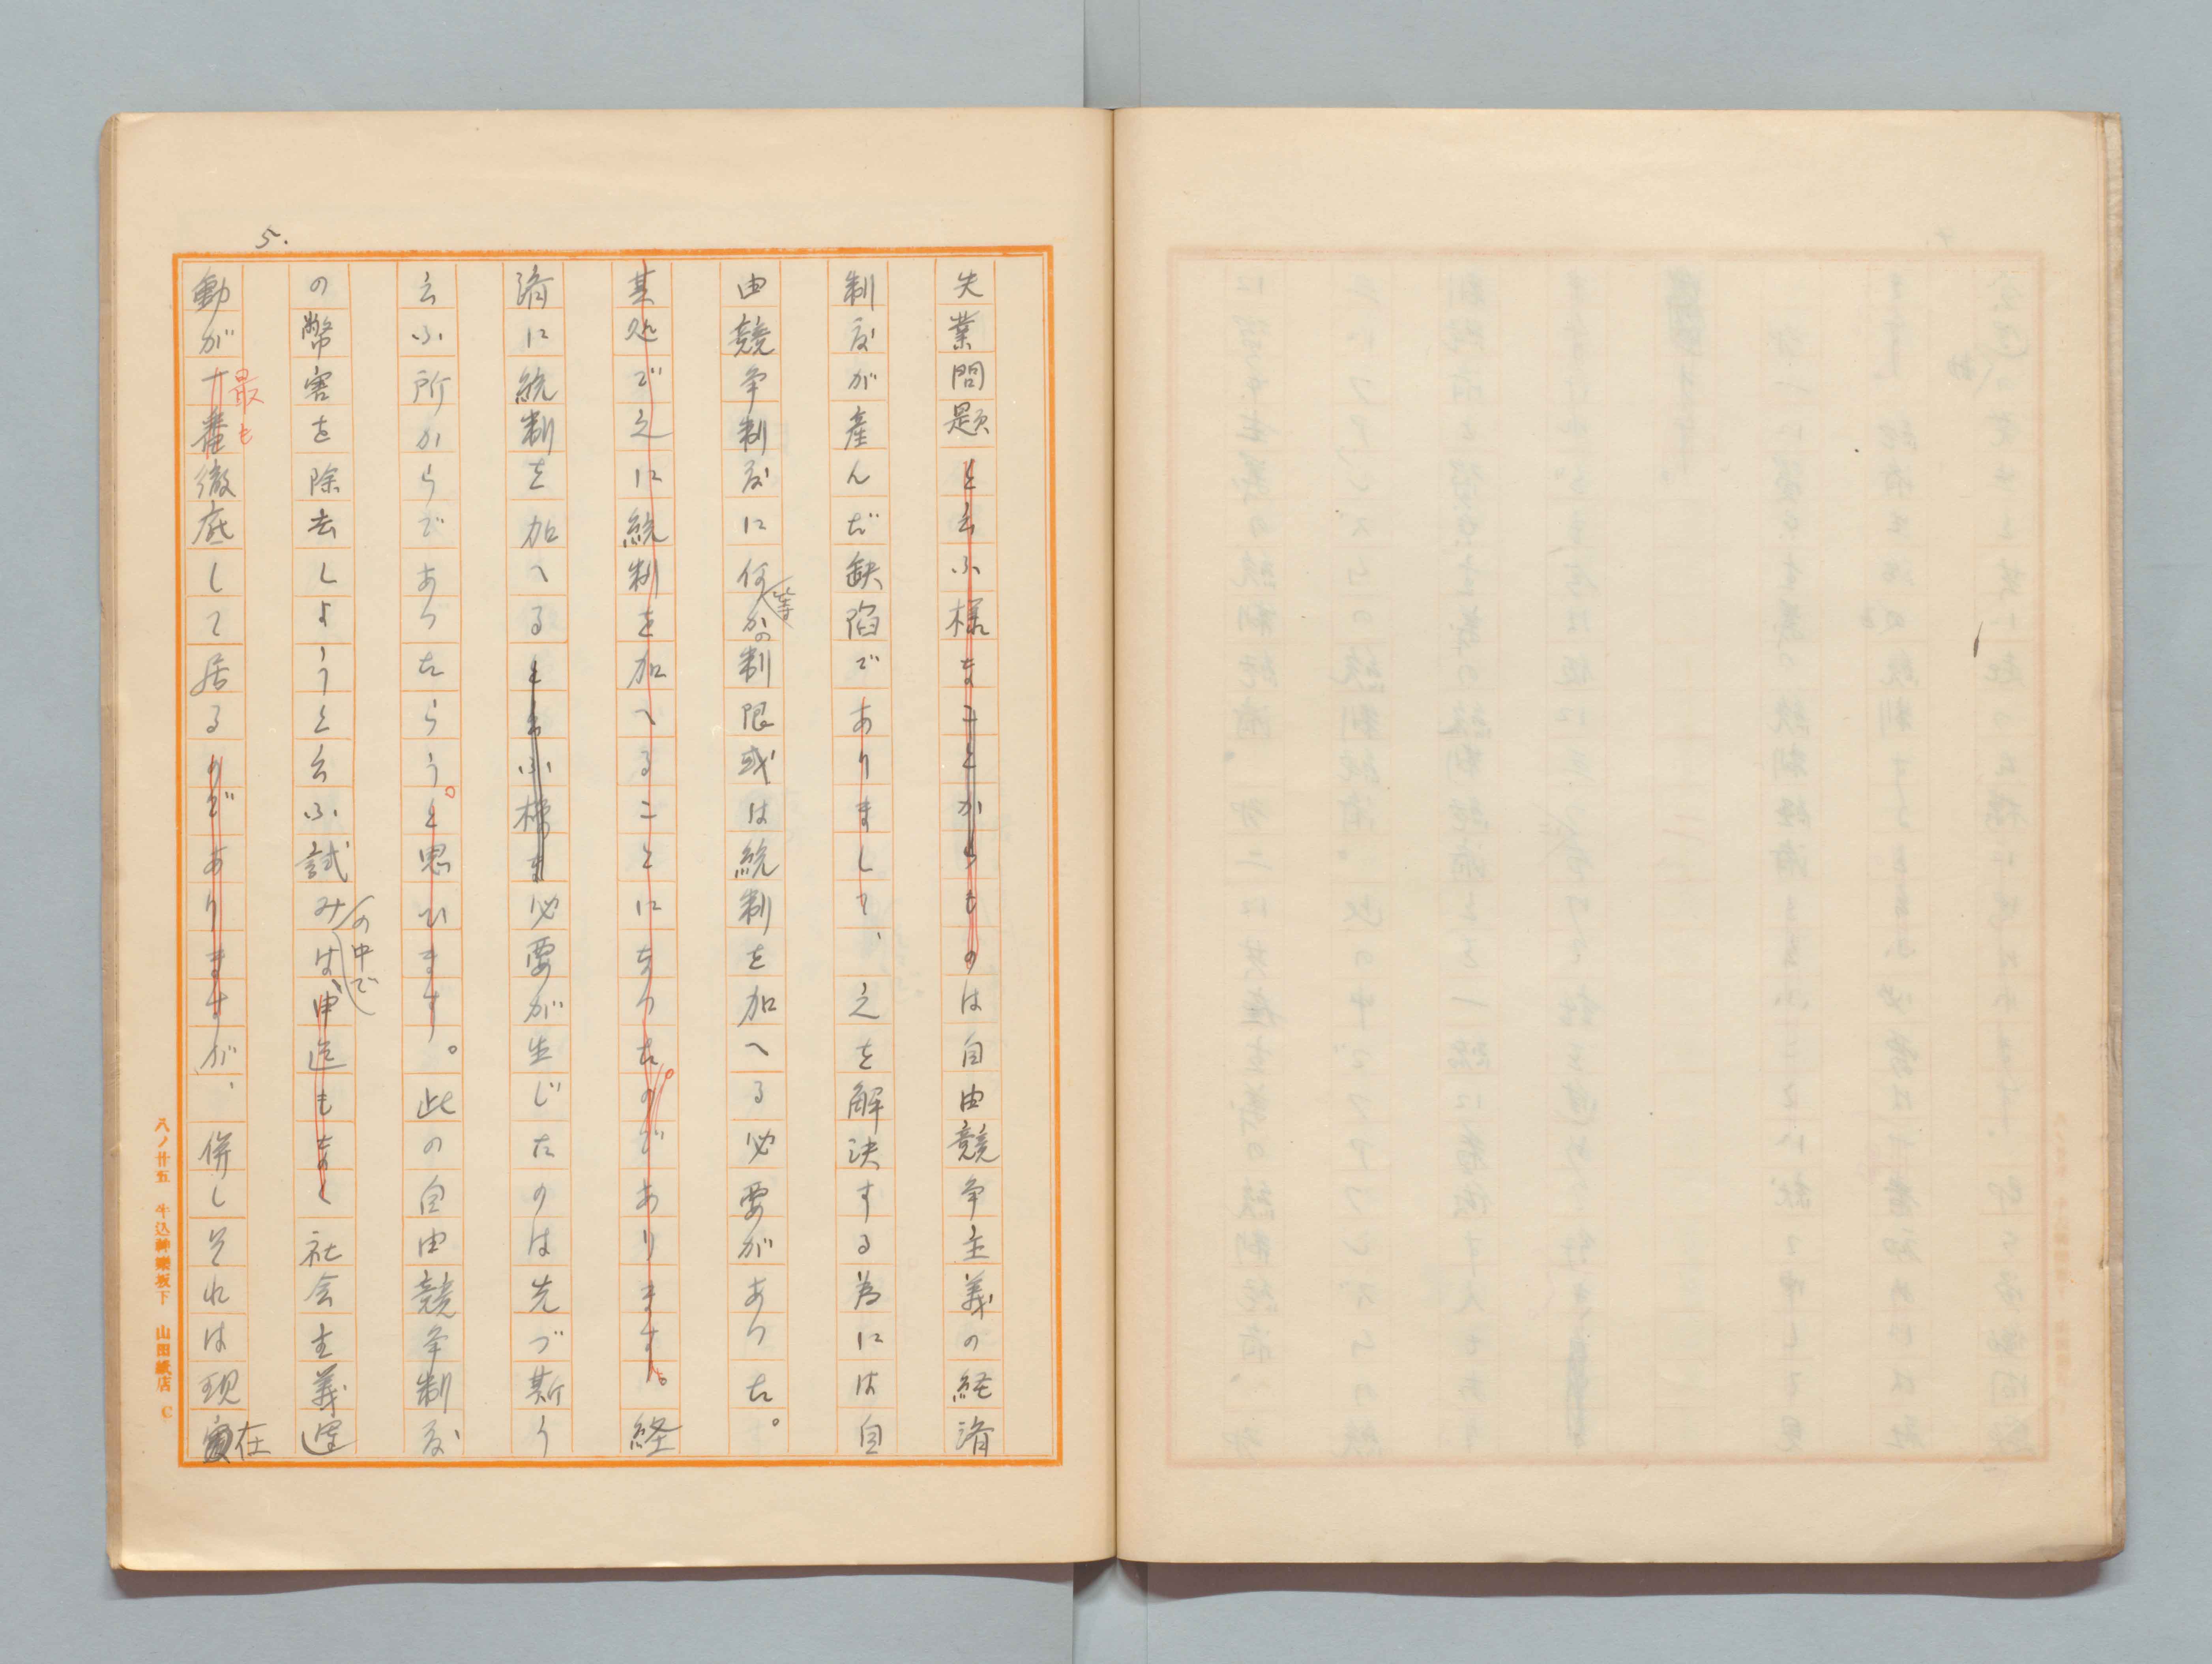 5.
失業問題と云ふ様なことからものは自由競争主義の経済
制度が産んだ缺陥でありまして、之を解決する為には自
由競争制度に何等かの制限或は統制を加へる必要があつた。
其処で之に統制を加へることになつた。のであります。経
済に統制を加へると云ふ様な必要が生じたのは先づ斯う
云ふ所からであつたらう。と思ひます。此の自由競争制度
の弊害を除去しようと云ふ試みの中では、申迄もなく社会主義運
動が十番最も徹底して居るのでありますが、併しそれは現在
八ノ廿五 牛込神樂坂下 山田紙店 C